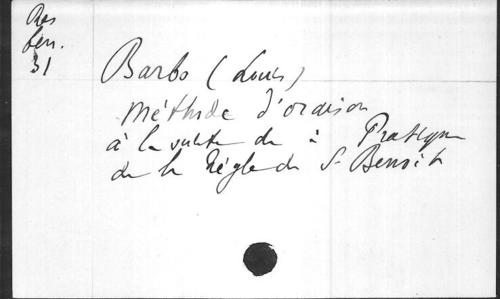 Res
ben.
31
Barbo (Louis)
Méthode d'oraison
à la suite de : Pratique
de la Règle de St Benoît